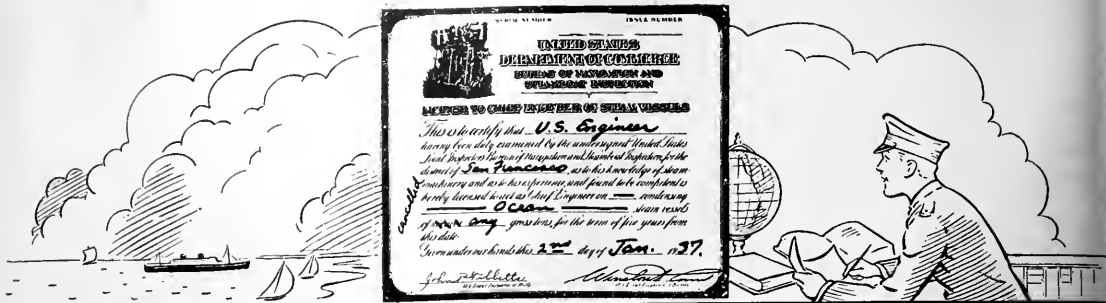 SERIAL NUMBER ISSUE NUMBER
UNITED STATES
DEPARTMENT OF COMMERCE
BUREAU OF NAVIGATION AND
STEAMBOAT INSPECTION
LICENSE TO CHIEF ENGINEER OF STEAM VESSELS
This is to certify that U.S. Engineer
having been duly examined by the undersigned United States
Local Inspectors Bureau of Navigation and Steamboat Inspection, for the
district of San Francisco, as to his knowledge of steam
machinery and as to his experience, and found to be competent is
hereby licensed to act as Chief Engineer on — condensing
Ocean steam vessels
cancelled
of any gross tons, for the term of five years from
this date.
Given under our hands this 2nd day of Jan. 1937.
John